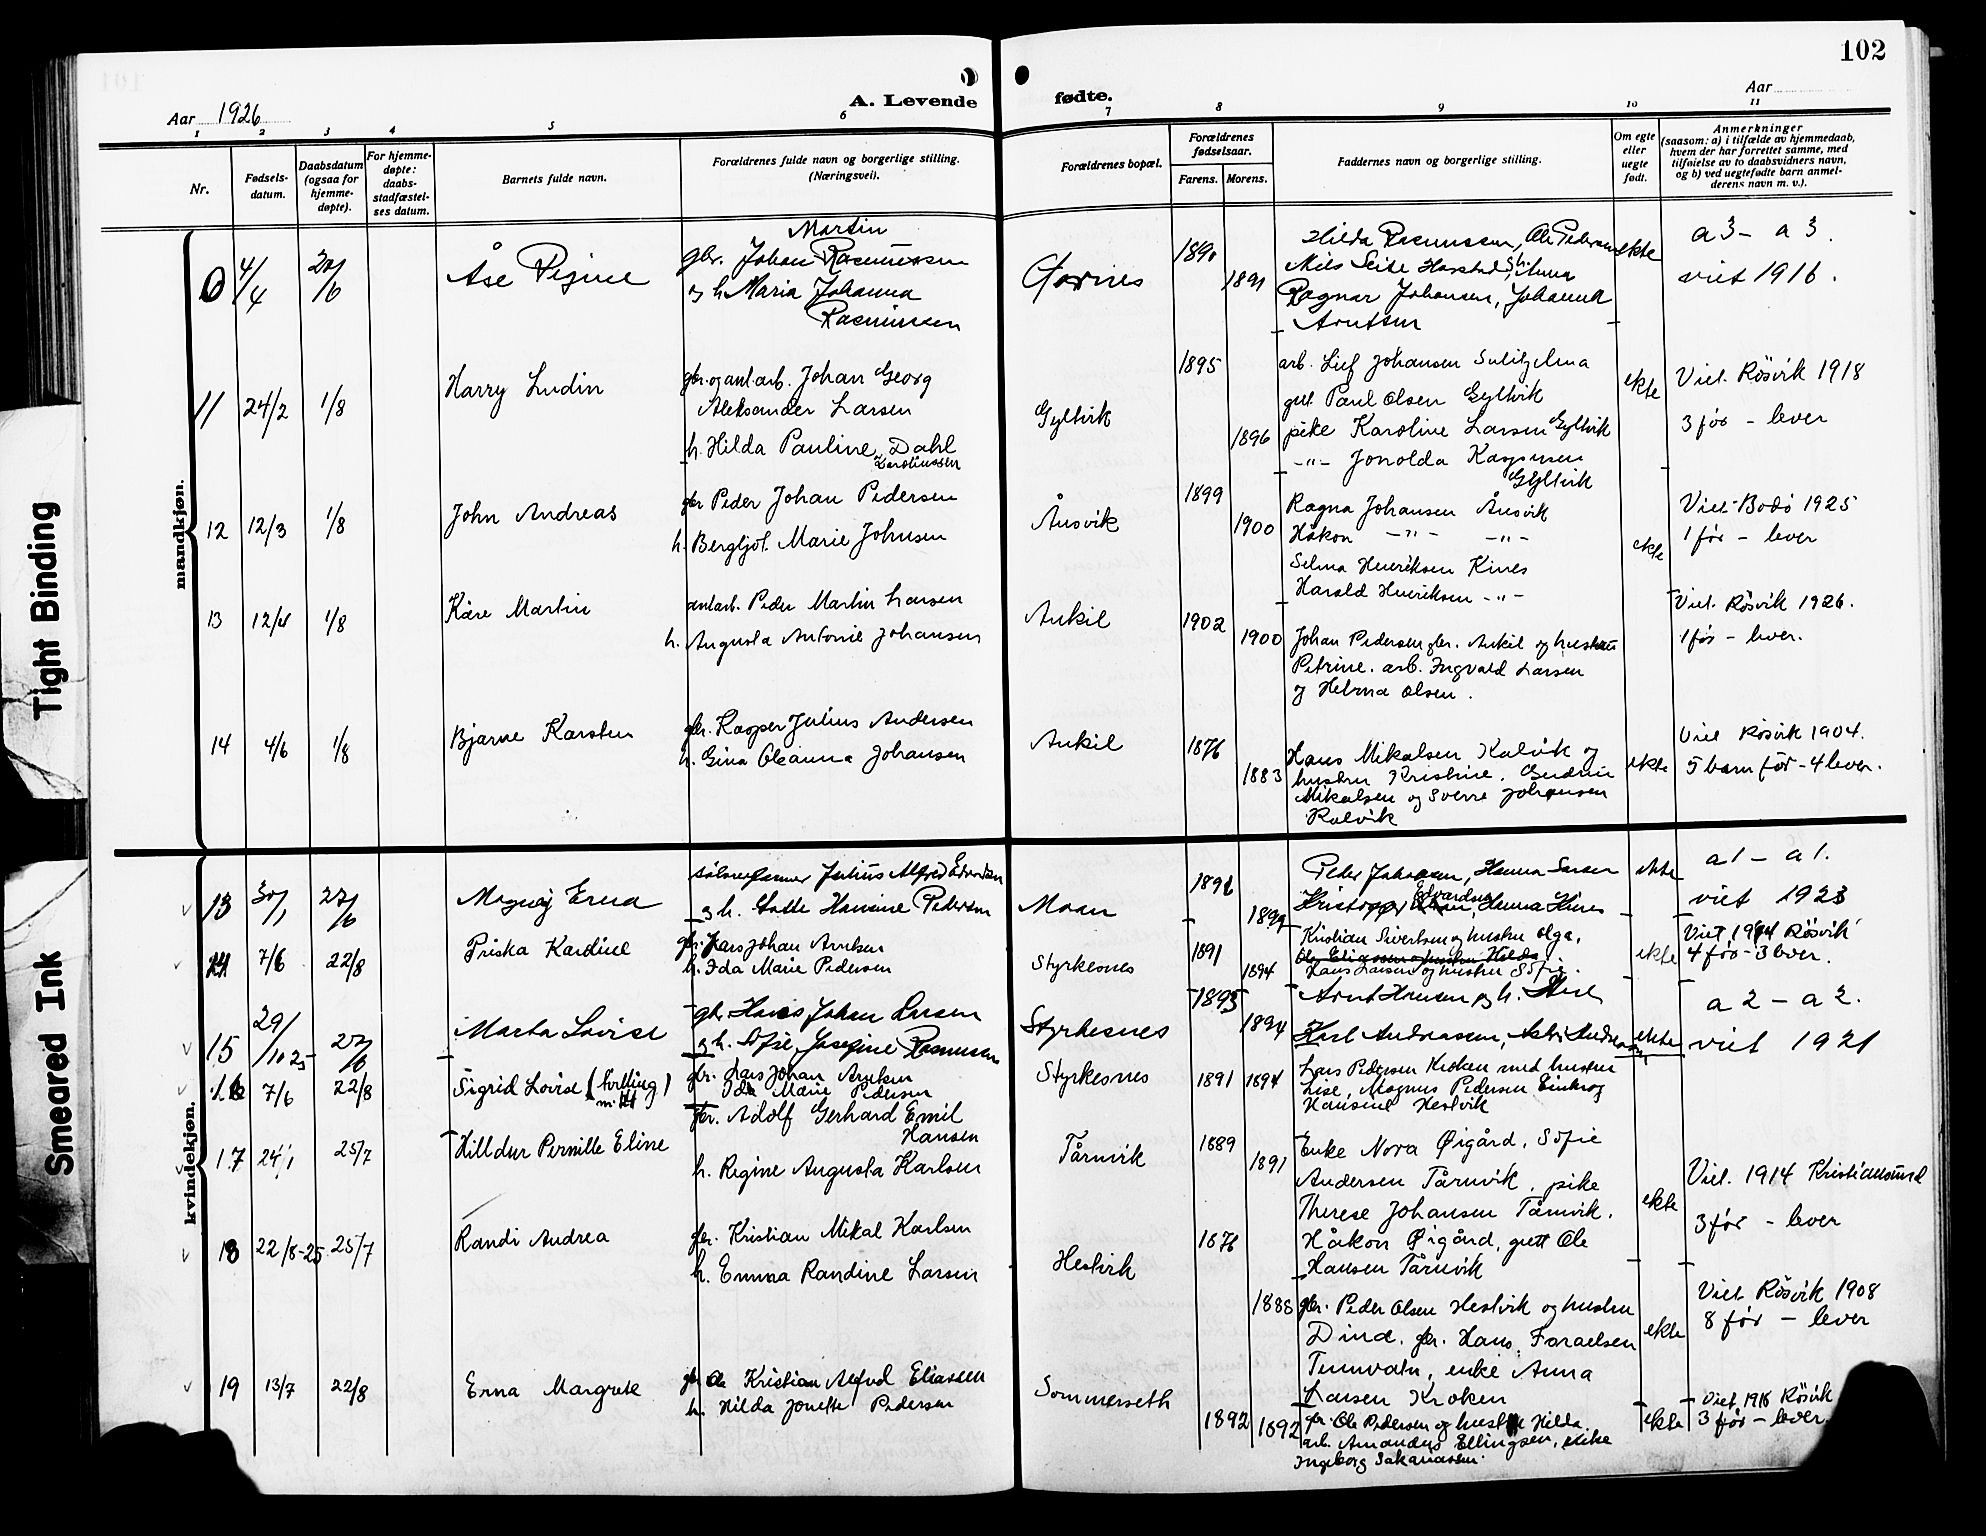 102
Aar 1926
A. Levende
fødte.
Aar
1 2 3 4 5 6 7 8 9 10 11
Nr.
Fødsels-
datum.
Daabsdatum
(ogsaa for
hjemme-
døpte).
For hjemme-
døpte:
daabs-
stadfæstel-
ses datum.
Barnets fulde navn.
Forældrenes fulde navn og borgerlige stilling.
(Næringsvei).
Forældrenes bopæl.
Forældrenes
fødselsaar.
Farens. Morens.
Faddernes navn og borgerlige stilling.
Om egte
eller
uegte
født.
Anmerkninger
(saasom: a) i tilfælde av hjemmedaab,
hvem der har forrettet samme, med
tilføielse av to daabsvidners navn,
og b) ved uegtefødte barn anmel-
derens navn m. v.).
mandkjøn.
4/4
Åse
Martin
gbr. Johan Rasmussen
og h. Maria Johanna
Rasmussen
1891
Hilda Rasmussen, Ole Pedersen
Ragnar Johansen, Johanna
Arntsen
ekte
a 3 - a 3.
viet 1916.
11 24/2 1/8
Harry Ludin
gbr. og anl.arb. Johan Georg
Aleksander Larsen
h. Hilda Pauline Dahl
Gyltvik
1895
1896
arb. Leif Johansen Sulitjelma
gut Paul Olsen Gyltvik
pike Karoline Larsen Gyltvik
-"- Jonolda Kaspersen
Gyltvik
ekte
Viet. Røsvik 1918
3 før - lever
12 12/3 1/8
John Andreas
gbr Peder Johan Pedersen
h. Bergljot Marie Johnsen
Ånsvik
1899
1900
Ragna Johansen Ånsvik
Håkon -"- -"-
Selma Henriksen Kines
Harald Henriksen -"-
ekte
Viet Bodø 1925
1 før - lever
13 12/4 1/8
Kåre Martin
anl.arb. Peder Martin Larsen
h. Augusta Antonie Johansen
Ankil
1902
1900
Johan Pedersen gbr. Ankil og hustru
Petrine. arb. Ingvald Larsen
og Helma Olsen.
Viet. Røsvik 1926.
1 før - lever.
14 4/6 1/8
Bjarne Karsten
gbr. Kasper Julius Andersen
h. Gina Oleanna Johansen
Ankil
1876
1883
Hans Mikalsen Kalvik og
hustru Kristine. Gudrun
Mikalsen og Sverre Johansen
Kalvik
ekte
Viet Røsvik 1904.
5 barn før - 4 lever.
kvindekjøn.
13 30/1 27/6
Magny Erna
Julius Alfred Edvardsen
og h. Hansine Pedersen
Moan
1899
Peder Johansen, Hanna Larsen
Edvardsen
ekte
a 1 - a 1.
viet 1923
7/6 22/8
Friska Kardine
gbr. Lars Johan Arntsen
h. Ida Marie Pedersen
Styrkesnes
1891
1894
Kristian Sivertsen og hustru Olga.
Ole Eliassen og hustru Hilda
Hans Larsen og hustru Sofie.
ekte
Viet 1914 Røsvik
4 før - 3 lever.
15 29/10 25 27/6
Marta Lovise
gbr. Hans Johan Larsen
og h. Sofie Josefine Rasmussen
Styrkesnes
1893
1894
Arnt Hansen og h.
Karl Andreassen,
ekte
a 2 - a 2.
viet 1921
16 7/6 22/8
Sigrid Lovise (tvilling)
gbr. Lars Johan Arntsen
Ida Marie Pedersen
Styrkesnes
1891 1894
Lars Pedersen Kroken med hustru
Lise, Magnus Pedersen
Hansine Hestvik
17 24/1 25/7
Hilldur Pernille Eline
gbr. Adolf Gerhard Emil
Hansen
h. Regine Augusta Karlsen
Tårnvik
1889
1891
Enke Nora Øigård, Sofie
Andersen Tårnvik, pike
Therese Johansen Tårnvik.
Håkon Øigård, gutt Ole
Hansen Tårnvik
ekte
Viet. 1914 Kristiansund
3 før - lever
18 22/8-25 25/7
Randi Andrea
gbr. Kristian Mikal Karlsen
h. Emma Randine Larsen
Hestvik
1876
1888
gbr. Peder Olsen Hestvik og hustru
Dina. gbr. Hans Israelsen
Tennvatn, enke Anna
Larsen Kroken
ekte
Viet Røsvik 1908
8 før - lever
19 13/7 22/8
Erna Margrete
gbr Ole Kristian Alfred Eliassen
h. Hilda Jonette Pedersen
Sommerseth
1892
1892
gbr. Ole Pedersen og hustru Hilda.
arb. Amandus Ellingsen, pike
Ingeborg Sakariassen.
ekte
Viet 1916 Røsvik
3 før - lever.
Tight Binding
Smeared Ink